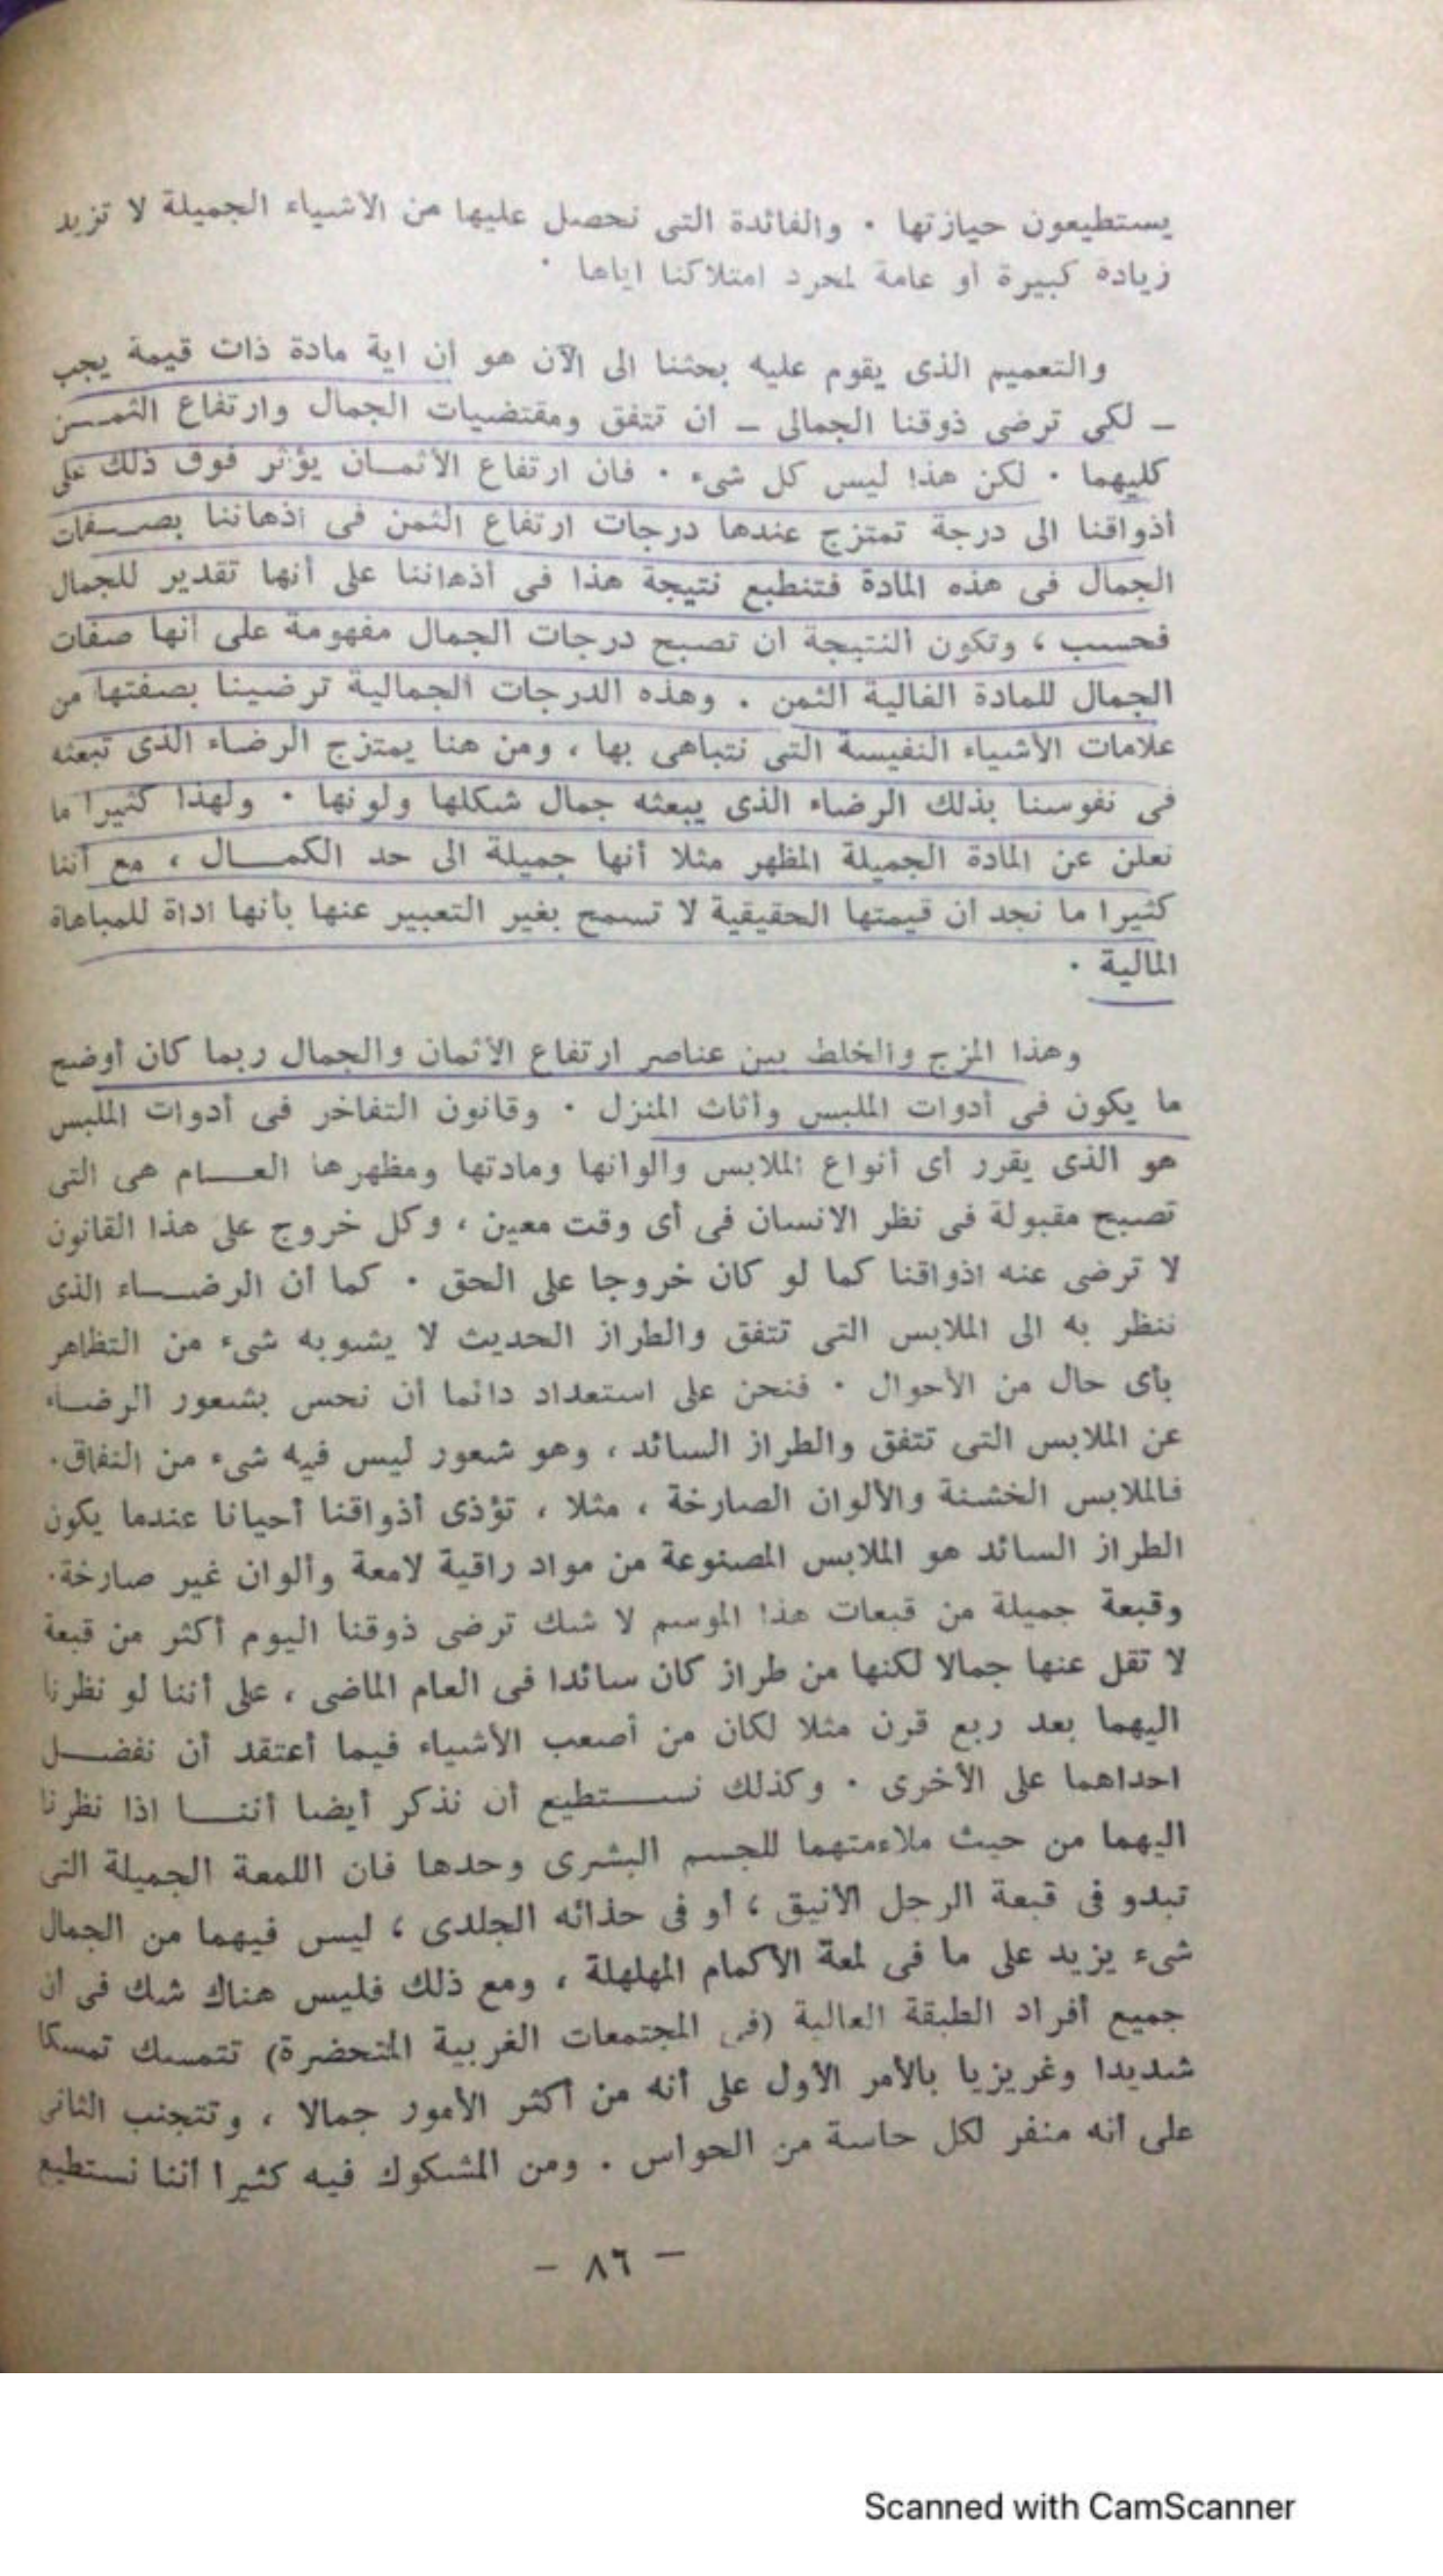 يستطيعون حيازتها ٠ والفائدة التى نحصل عليها من الاشياء الجميلة لا تزيد
زيادة كبيرة أو عامة لمجرد امتلاكنا اياها ٠
والتعميم الذى يقوم عليه بحثنا الى الآن هو أن اية مادة ذات قيمة يجب
ـ لكى ترضى ذوقنا الجمالى ـ أن تتفق ومقتضيات الجمال وارتفاع الثمـــن
كليهما ٠ لكن هذا ليس كل شىء ٠ فان ارتفاع الأثمـان يؤثر فوق ذلك على
أذواقنا الى درجة تمتزج عندها درجات ارتفاع الثمن فى أذهاننا بصــفات
الجمال فى هذه المادة فتنطبع نتيجة هذا فى أذهاننا على أنها تقدير للجمال
فحسب ، وتكون النتيجة أن تصبح درجات الجمال مفهومة على أنها صفات
الجمال للمادة الغالية الثمن . وهذه الدرجات الجمالية ترضينا بصفتها من
علامات الأشياء النفيسة التى نتباهى بها ، ومن هنا يمتزج الرضاء الذى تبعثه
فى نفوسنا بذلك الرضاء الذى يبعثه جمال شكلها ولونها ٠ ولهذا كثيرا ما
نعلن عن المادة الجميلة المظهر مثلا أنها جميلة الى حد الكمـــال ، مع أننا
كثيرا ما نجد أن قيمتها الحقيقية لا تسمح بغير التعبير عنها بأنها اداة للمباهاة
المالية ٠
وهذا المزج والخلط بين عناصر ارتفاع الأثمان والجمال ربما كان أوضح
ما يكون فى أدوات الملبس وأثاث المنزل ٠ وقانون التفاخر فى أدوات الملبس
هو الذى يقرر أى أنواع الملابس والوانها ومادتها ومظهرها العـــام هى التى
تصبح مقبولة فى نظر الانسان فى أى وقت معين ، وكل خروج على هذا القانون
لا ترضى عنه اذواقنا كما لو كان خروجا على الحق ٠ كما أن الرضـــاء الذى
ننظر به الى الملابس التى تتفق والطراز الحديث لا يشوبه شىء من التظاهر
بأى حال من الأحوال ٠ فنحن على استعداد دائما أن نحس بشعور الرضـاء
عن الملابس التى تتفق والطراز السائد ، وهو شعور ليس فيه شىء من النفاق٠
فالملابس الخشنة والألوان الصارخة ، مثلا ، تؤذى أذواقنا أحيانا عندما يكون
الطراز السائد هو الملابس المصنوعة من مواد راقية لامعة وألوان غير صارخة٠
وقبعة جميلة من قبعات هذا الموسم لا شك ترضى ذوقنا اليوم أكثر من قبعة
لا تقل عنها جمالا لكنها من طراز كان سائدا فى العام الماضى ، على أننا لو نظرنا
اليهما بعد ربع قرن مثلا لكان من أصعب الأشياء فيما أعتقد أن نفضـــل
احداهما على الأخرى ٠ وكذلك نســـتطيع أن نذكر أيضا أننـــا اذا نظرنا
اليهما من حيث ملاءمتهما للجسم البشرى وحدها فان اللمعة الجميلة التى
تبدو فى قبعة الرجل الأنيق ، أو فى حذائه الجلدى ، ليس فيهما من الجمال
شىء يزيد على ما فى لمعة الأكمام المهلهلة ، ومع ذلك فليس هناك شك فى أن
جميع أفراد الطبقة العالية (فى المجتمعات الغربية المتحضرة) تتمسك تمسكا
شديدا وغريزيا بالأمر الأول على أنه من أكثر الأمور جمالا ، وتتجنب الثانى
على أنه منفر لكل حاسة من الحواس . ومن المشكوك فيه كثيرا أننا نستطيع
– ٨٦ –
Scanned with CamScanner